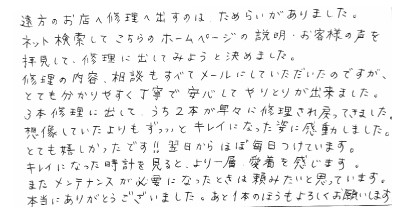 遠方のお店へ修理へ出すのは、ためらいがありました。
ネット検索してこちらのホームページの説明・お客様の声を
拝見して、修理に出してみようと決めました。
修理の内容、相談もすべてメールにしていただいたのですが、
とても分かりやすく丁寧で安心してやりとりが出来ました。
3本修理に出して、うち2本が早々に修理され戻ってきました。
想像していたよりもずっっとキレイになった姿に感動しました。
とても嬉しかったです!!翌日からほぼ毎日つけています。
キレイになった時計を見ると、より一層、愛着を感じます。
またメンテナンスが必要になったときは頼みたいと思っています。
本当にありがとうございました。あと1本のほうもよろしくお願いします